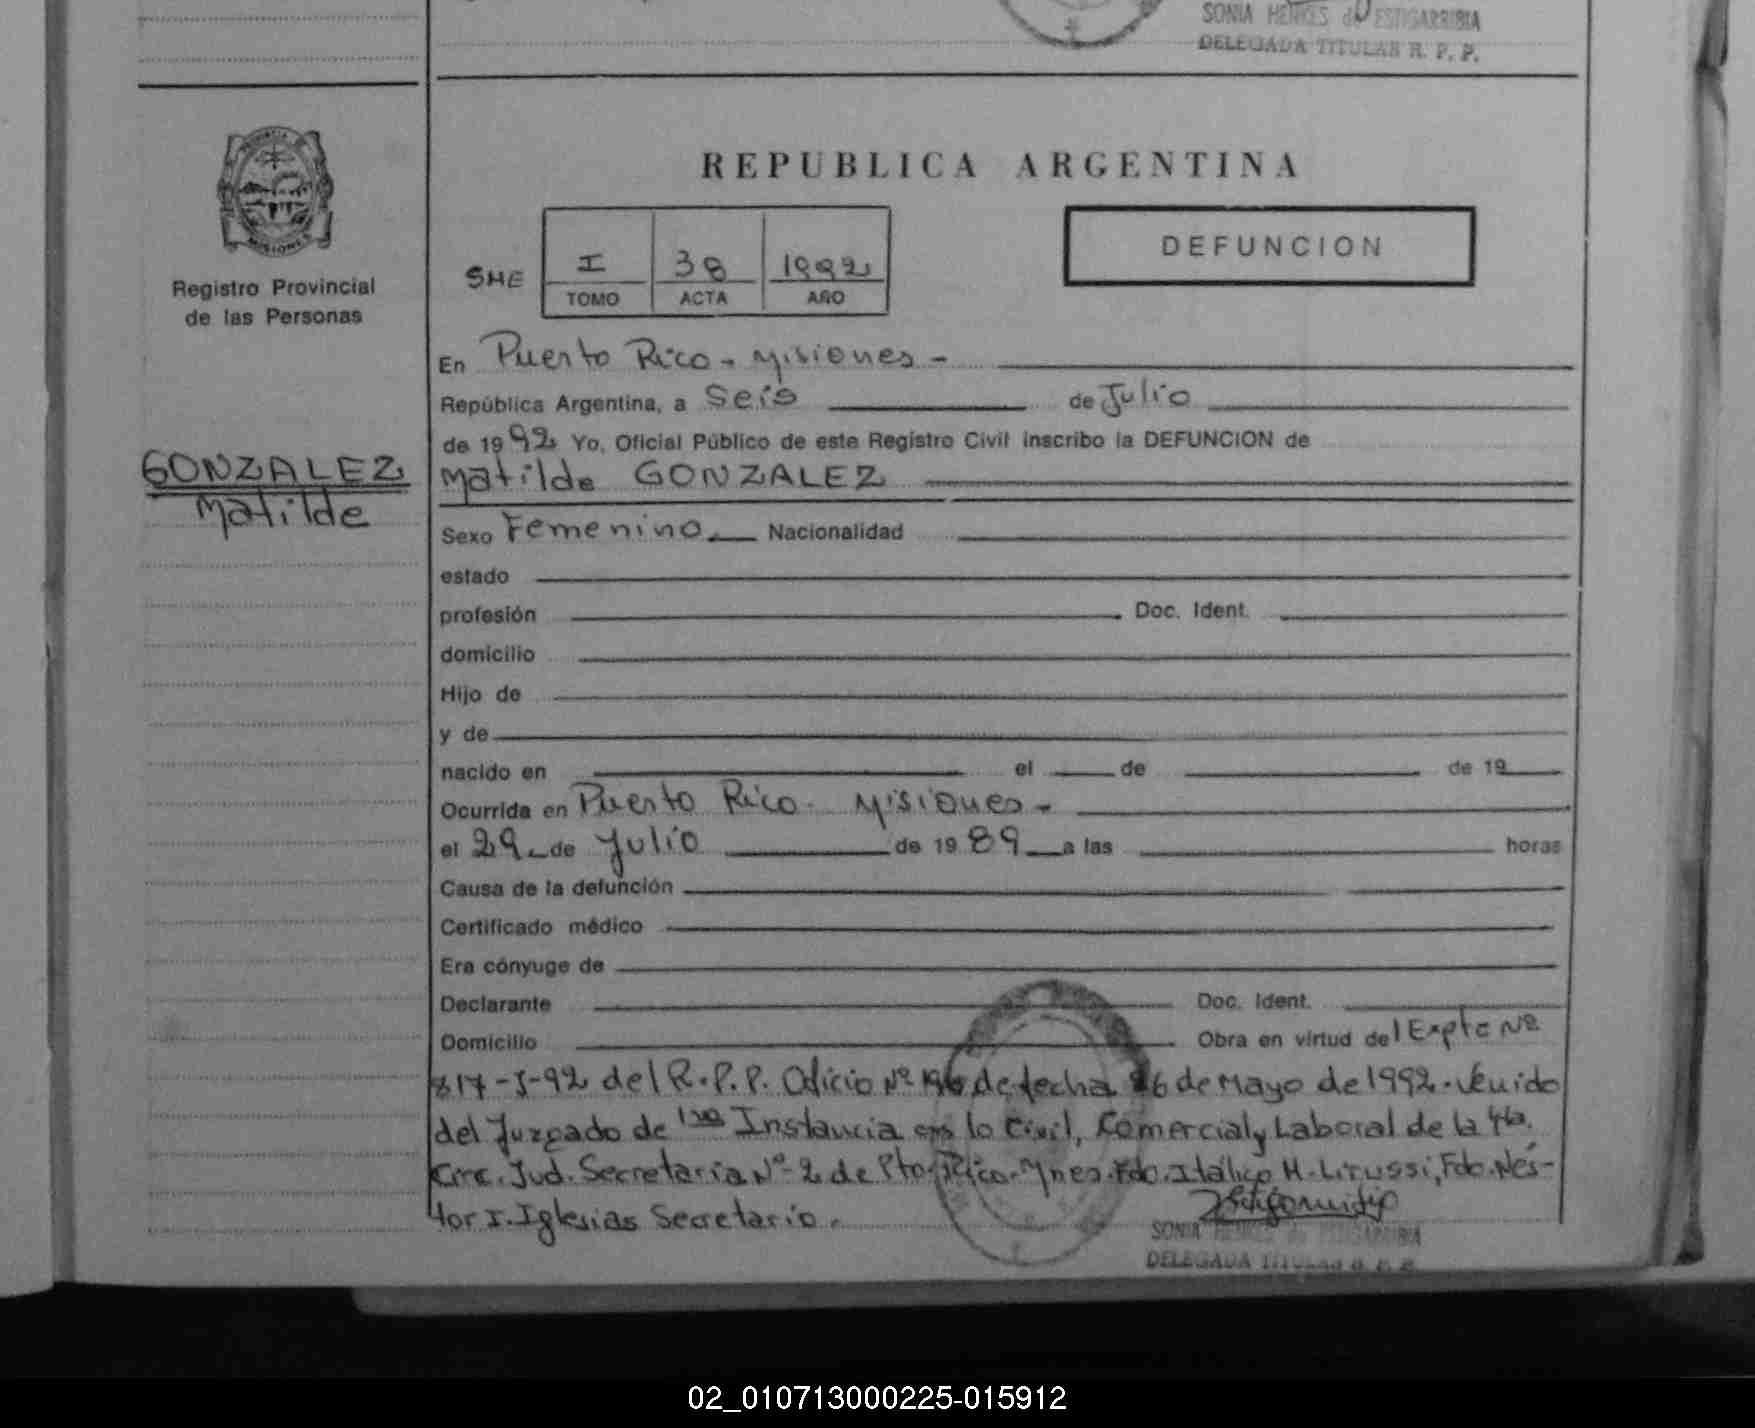 SONIA HENKES de ESTIGARRIBIA
DELEGADA TITULAR R. P. P.
MISIONES
Registro Provincial
de las Personas
GONZALEZ
Matilde
REPUBLICA ARGENTINA
SHE I 38 1992
TOMO ACTA AÑO
DEFUNCION
En Puerto Rico - Misiones -
República Argentina, a Seis de Julio
de 1992 Yo, Oficial Público de este Registro Civil inscribo la DEFUNCION de
Matilde GONZALEZ
Sexo Femenino. Nacionalidad
estado
profesión Doc. Ident.
domicilio
Hijo de
y de
nacido en el de de 19
Ocurrida en Puerto Rico - Misiones -
el 29 de Julio de 1989 a las horas
Causa de la defunción
Certificado médico
Era cónyuge de
Declarante Doc. Ident.
Domicilio Obra en virtud del Expte Nº
817-J-92 del R.P.P. Oficio Nº de fecha 26 de Mayo de 1992. Venido
del Juzgado de 1ra Instancia en lo Civil, Comercial y Laboral de la 4ta.
Circ. Jud. Secretaria Nº 2 de Pto. Rico - Mnes. Fdo. Itálico H. Lirussi, Fdo. Nés-
tor I. Iglesias Secretario.
SONIA HENKES de ESTIGARRIBIA
DELEGADA TITULAR R. P. P.
02_010713000225-015912